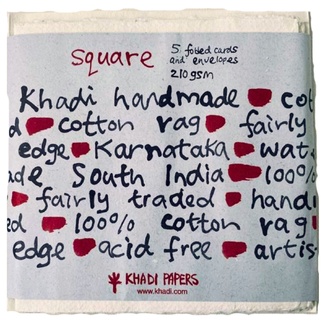 square
5 folded cards
and envelopes
210gsm
Khadi handmade cot
d cotton rag fairly
edge Karnataka wat
ade South India 100%
fairly traded handi
ed 100% cotton rag
edge acid free artis
KHADI PAPERS
www.khadi.com